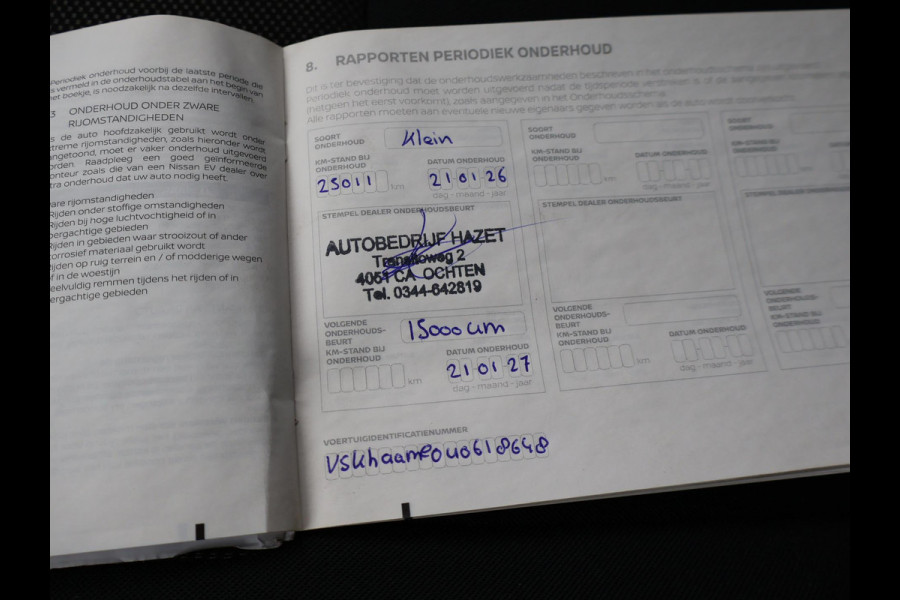 Periodiek onderhoud voorbij de laatste periode die
is vermeld in de onderhoudstabel aan het begin van
het boekje, is noodzakelijk na dezelfde intervallen.
3 ONDERHOUD ONDER ZWARE
RIJOMSTANDIGHEDEN
s de auto hoofdzakelijk gebruikt wordt onder
xtreme rijomstandigheden, zoals hieronder wordt
angetoond, moet er vaker onderhoud uitgevoerd
orden. Raadpleeg een goed geïnformeerde
onteur zoals die van een Nissan EV dealer over
tra onderhoud dat uw auto nodig heeft.
are rijomstandigheden
Rijden onder stoffige omstandigheden
Rijden bij hoge luchtvochtigheid of in
bergachtige gebieden
Rijden in gebieden waar strooizout of ander
corrosief materiaal gebruikt wordt
Rijden op ruig terrein en / of modderige wegen
of in de woestijn
eelvuldig remmen tijdens het rijden of in
ergachtige gebieden
8. RAPPORTEN PERIODIEK ONDERHOUD
Dit is ter bevestiging dat de onderhoudswerkzaamheden beschreven in het
periodiek onderhoud moet worden uitgevoerd nadat de tijdsperiode verstreken is of de
(hetgeen het eerst voorkomt), zoals aangegeven in het Onderhoudsschema.
Alle rapporten moeten aan eventuele nieuwe eigenaars gegeven worden als de auto wordt
SOORT ONDERHOUD Klein
KM-STAND BIJ ONDERHOUD DATUM ONDERHOUD
25011 km 21 01 26
dag - maand - jaar
STEMPEL DEALER ONDERHOUDSBEURT
AUTOBEDRIJF HAZET
4051 CA OCHTEN
Tel. 0344-642819
VOLGENDE ONDERHOUDS-BEURT 15000 km
KM-STAND BIJ ONDERHOUD DATUM ONDERHOUD
km 21 01 27
dag - maand - jaar
SOORT ONDERHOUD
KM-STAND BIJ ONDERHOUD DATUM ONDERHOUD
km dag - maand - jaar
STEMPEL DEALER ONDERHOUDSBEURT
VOLGENDE ONDERHOUDS-BEURT
KM-STAND BIJ ONDERHOUD DATUM ONDERHOUD
km dag - maand - jaar
SOORT ONDERHOUD
KM-STAND BIJ ONDERHOUD
STEMPEL DEALER
VOLGENDE ONDERHOUDS-BEURT
KM-STAND BIJ ONDERHOUD
VOERTUIGIDENTIFICATIENUMMER